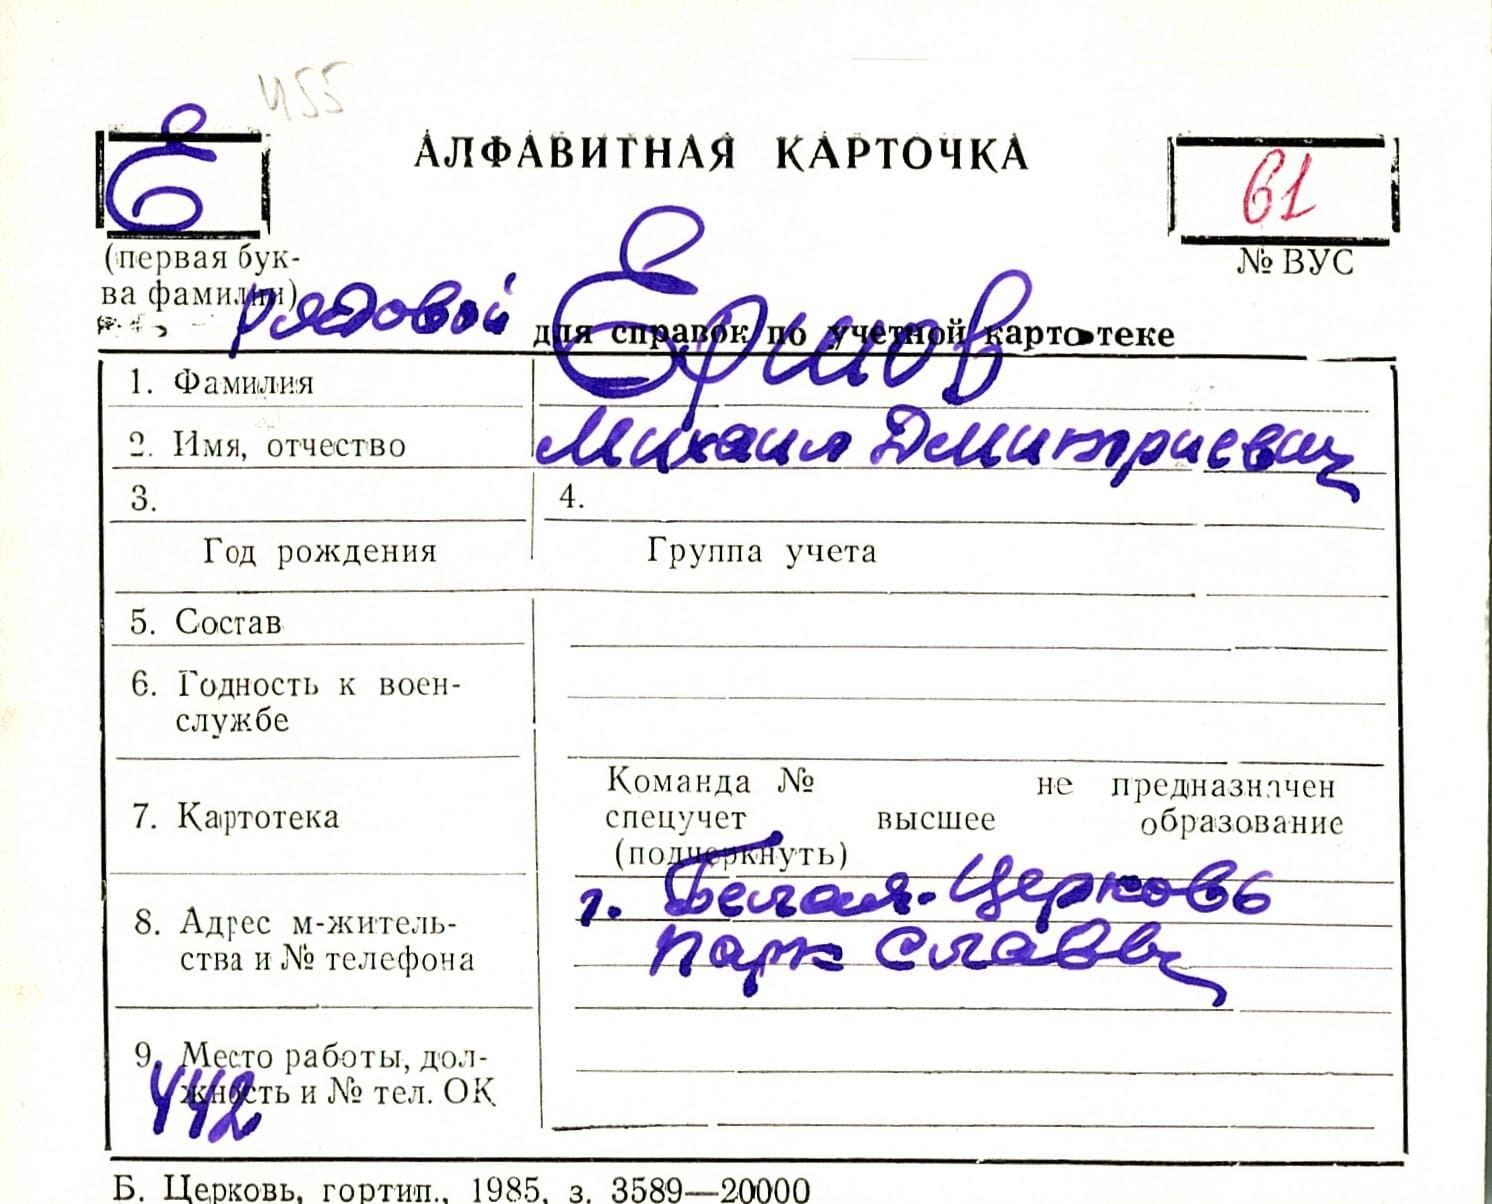 455
Е
АЛФАВИТНАЯ КАРТОЧКА
61
(первая бук-
ва фамилии)
№ ВУС
рядовой
для справок по учетной картотеке
1. Фамилия Ершов
2. Имя, отчество Михаил Дмитриевич
3. 4.
Год рождения Группа учета
5. Состав
6. Годность к воен-
службе
7. Картотека
Команда № не предназначен
спецучет высшее образование
(подчеркнуть)
8. Адрес м-житель-
ства и № телефона
г. Белая-Церковь
парк Славы
9. Место работы, дол-
жность и № тел. ОК
442
Б. Церковь, гортип., 1985, з. 3589—20000